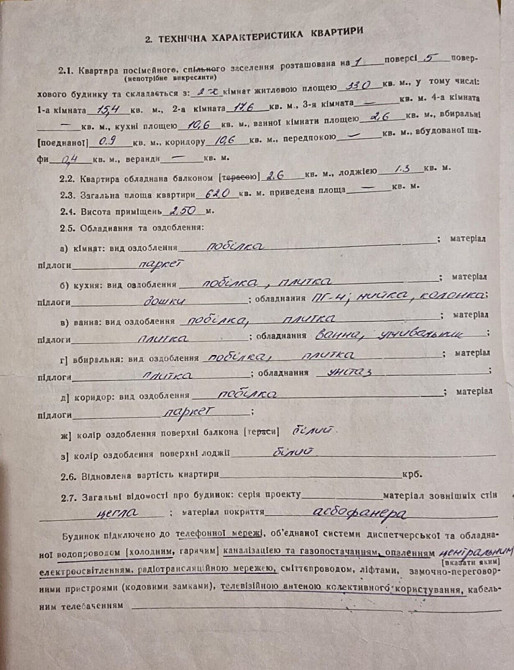 2. ТЕХНІЧНА ХАРАКТЕРИСТИКА КВАРТИРИ
2.1. Квартира посімейного, спільного заселення розташована на 1 поверсі 5 повер-
(непотрібне викреслити)
хового будинку та складається з: 2-х кімнат житловою площею 33.0 кв. м., у тому числі:
1-а кімната 15,4 кв. м., 2-а кімната 17.6 кв. м., 3-я кімната — кв. м. 4-а кімната
— кв. м., кухні площею 10,6 кв. м., ванної кімнати площею 2,6 кв. м., вбиральні
[поєднаної] 0.9 кв. м., коридору 10,6 кв. м., передпокою — кв. м., вбудованої ша-
фи 0,4 кв. м., веранди — кв. м.
2.2. Квартира обладнана балконом [терасою] 2.6 кв. м., лоджією 1.3 кв. м.
2.3. Загальна площа квартири 62.0 кв. м. приведена площа — кв. м.
2.4. Висота приміщень 2.50 м.
2.5. Обладнання та оздоблення:
а) кімнат: вид оздоблення побілка ; матеріал
підлоги паркет
б) кухня: вид оздоблення побілка, плитка ; матеріал
підлоги дошки ; обладнання ПГ-4, мийка, колонка;
в) ванна: вид оздоблення побілка, плитка ; матеріал
підлоги плитка ; обладнання ванна, умивальник ;
г] вбиральня: вид оздоблення побілка, плитка ; матеріал
підлоги плитка ; обладнання унітаз ;
д] коридор: вид оздоблення побілка ; матеріал
підлоги паркет ;
ж] колір оздоблення поверхні балкона [тераси] білий
з] колір оздоблення поверхні лоджії білий
2.6. Відновлена вартість квартири крб.
2.7. Загальні відомості про будинок: серія проекту матеріал зовнішніх стін
цегла ; матеріал покриття асбофанера
Будинок підключено до телефонної мережі, об'єднаної системи диспетчерської та обладна-
ної водопроводом [холодним, гарячим] каналізацією та газопостачанням, опаленням центральним
[вказати яким]
електроосвітленням, радіотрансляційною мережею, сміттєпроводом, ліфтами, замочно-переговор-
ними пристроями (кодовими замками), телевізійною антеною колективного користування, кабель-
ним телебаченням